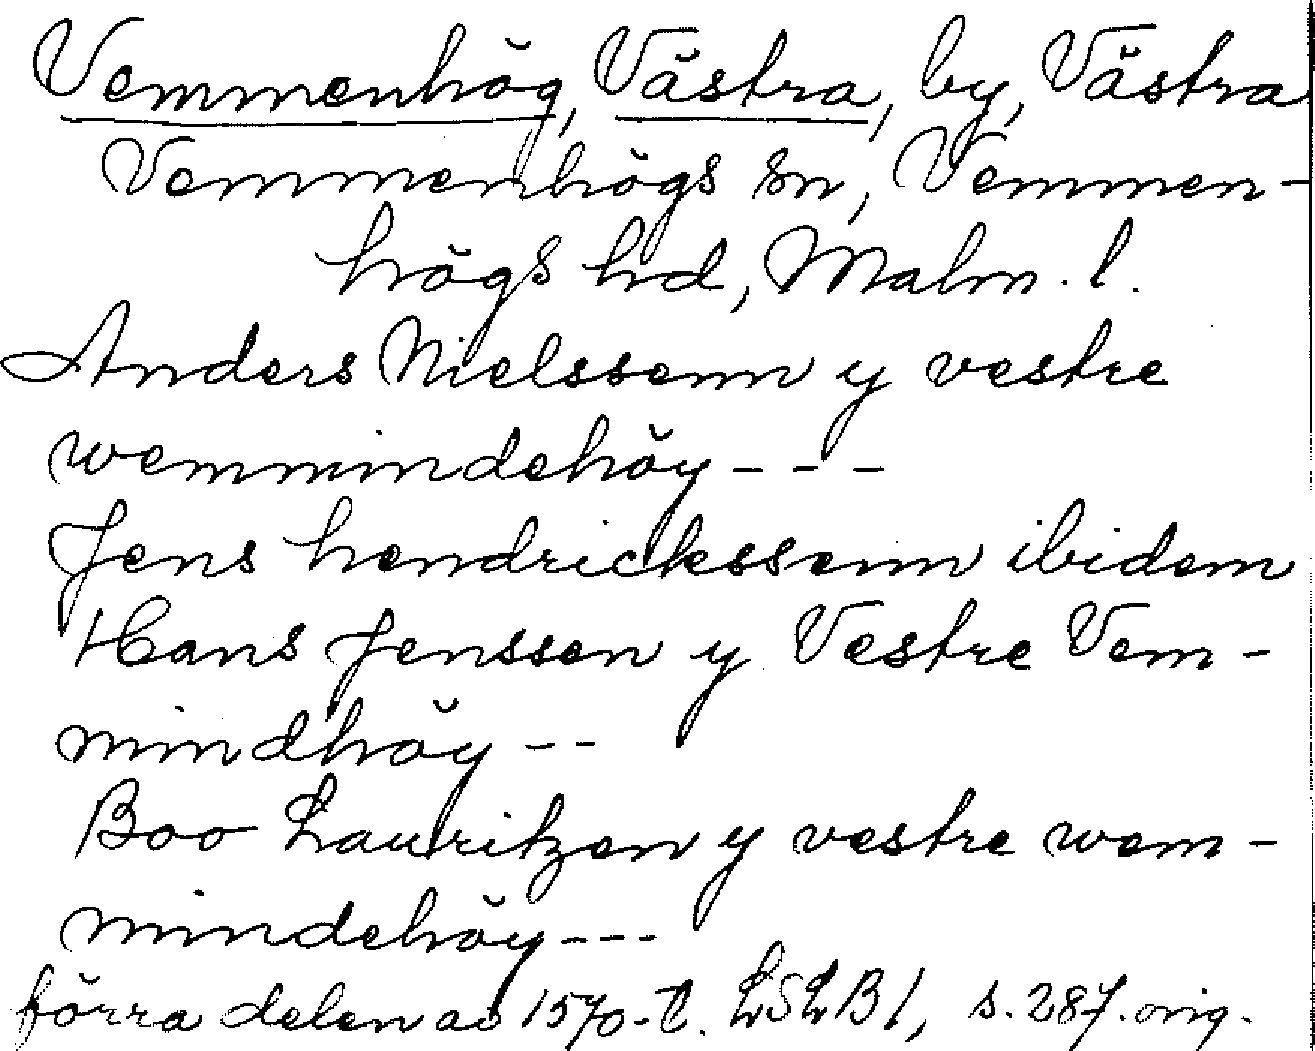 Vemmenhög, Västra, by, Västra
Vemmenhögs sn, Vemmen-
högs hd, Malm. l.
Anders Nielssenn y vestre
wemmindehöy - - -
Jens hendrickssenn ibidem
Hans Jenssen y Vestre Vem-
mindhöy - -
Boo Lauritzen y vestre wem-
mindehöy - - -
förra delen av 1570-t. LSLB 1, s. 287. orig.